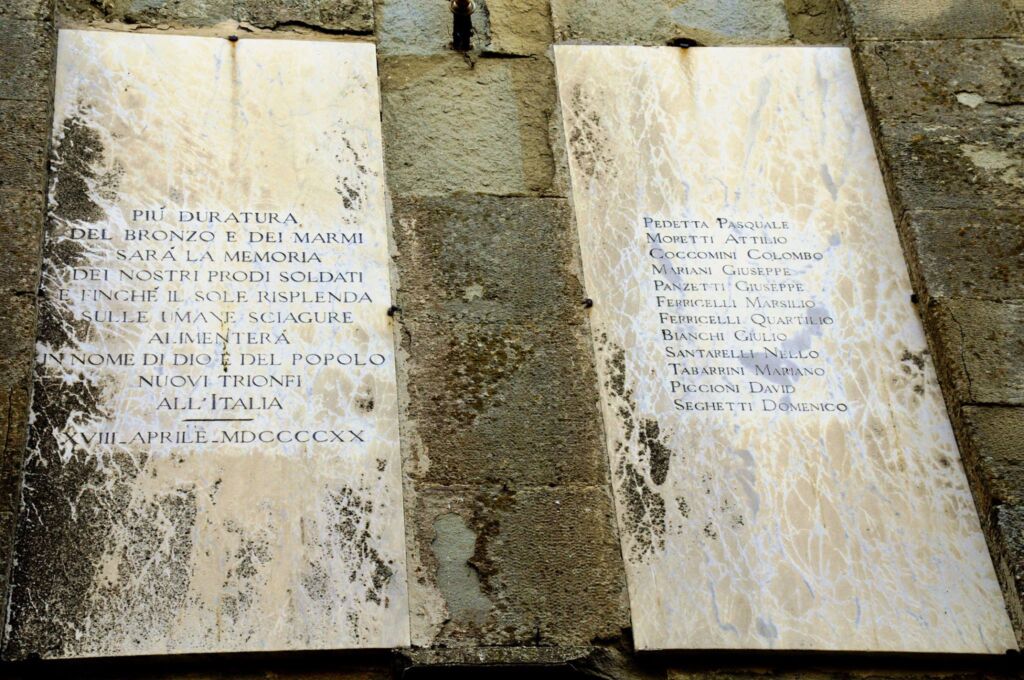 PIÚ DURATURA
DEL BRONZO E DEI MARMI
SARÁ LA MEMORIA
DEI NOSTRI PRODI SOLDATI
E FINCHÉ IL SOLE RISPLENDA
SULLE UMANE SCIAGURE
ALIMENTERÁ
IN NOME DI DIO E DEL POPOLO
NUOVI TRIONFI
ALL'ITALIA
XVIII_APRILE_MDCCCCXX
PEDETTA PASQUALE
MORETTI ATTILIO
COCCOMINI COLOMBO
MARIANI GIUSEPPE
PANZETTI GIUSEPPE
FERRICELLI MARSILIO
FERRICELLI QUARTILIO
BIANCHI GIULIO
SANTARELLI NELLO
TABARRINI MARIANO
PICCIONI DAVID
SEGHETTI DOMENICO